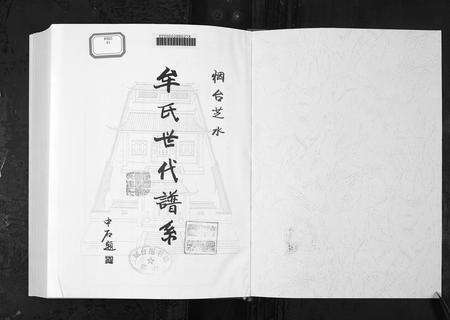 烟台芝水
牟氏世代譜系
中石題